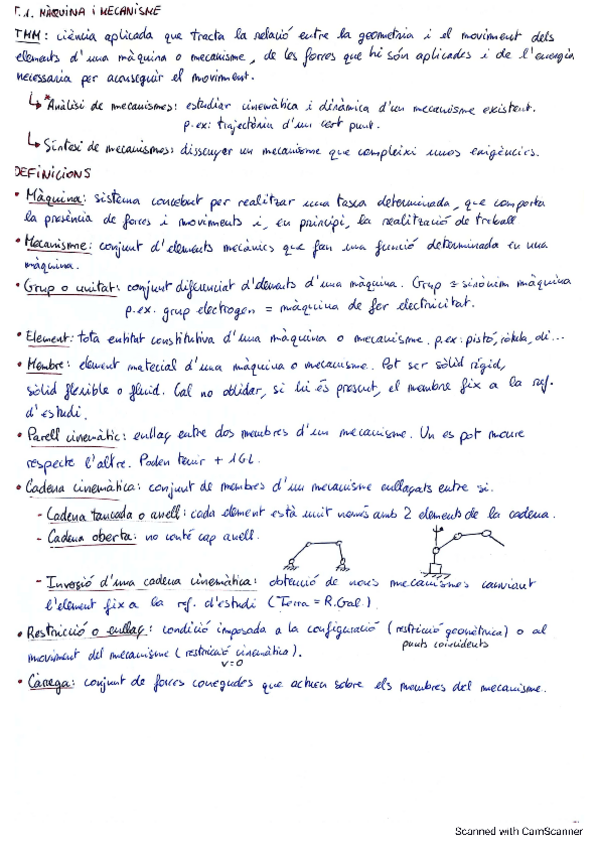 T.1. MÀQUINA i MECANISME
TMM: ciència aplicada que tracta la relació entre la geometria i el moviment dels
elements d'una màquina o mecanisme, de les forces que hi són aplicades i de l'energia
necessària per aconseguir el moviment.
↳ *Anàlisi de mecanismes: estudiar cinemàtica i dinàmica d'un mecanisme existent.
p.ex: trajectòria d'un cert punt.
↳ Síntesi de mecanismes: dissenyar un mecanisme que compleixi unes exigències.
DEFINICIONS
• Màquina: sistema concebut per realitzar una tasca determinada, que comporta
la presència de forces i moviments i, en principi, la realització de treball
• Mecanisme: conjunt d'elements mecànics que fan una funció determinada en una
màquina.
• Grup o unitat: conjunt diferenciat d'elements d'una màquina. Grup = sinònim màquina
p.ex. grup electrogen = màquina de fer electricitat.
• Element: tota entitat constitutiva d'una màquina o mecanisme. p.ex: pistó, ròtula, oli...
• Membre: element material d'una màquina o mecanisme. Pot ser sòlid rígid,
sòlid flexible o fluid. Cal no oblidar, si hi és present, el membre fix a la ref.
d'estudi.
• Parell cinemàtic: enllaç entre dos membres d'un mecanisme. Un es pot moure
respecte l'altre. Poden tenir + 1GL.
• Cadena cinemàtica: conjunt de membres d'un mecanisme enllaçats entre si.
- Cadena tancada o anell: cada element està unit només amb 2 elements de la cadena.
- Cadena oberta: no conté cap anell.
- Inversió d'una cadena cinemàtica: obtenció de nous mecanismes canviant
l'element fix a la ref. d'estudi (Terra = R.Gal.)
• Restricció o enllaç: condició imposada a la configuració (restricció geomètrica) o al
punts coincidents
moviment del mecanisme (restricció cinemàtica).
v=0
• Càrrega: conjunt de forces conegudes que actuen sobre els membres del mecanisme.
Scanned with CamScanner